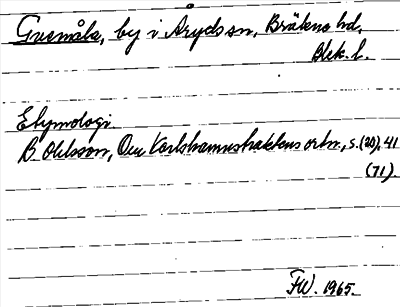 Gusmåla, by i Åryds sn, Bräkne hd,
Blek. l.
Etymologi.
B. Ohlsson, Om Karlshamnstraktens ortn., s. (20), 41
(71).
FW. 1965.